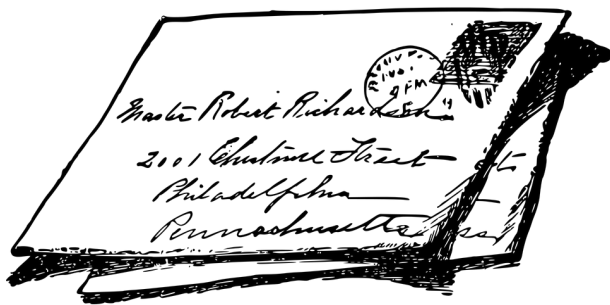 PM
Master Robert Richardson
2001 Chestnut Street
Philadelphia
Pennachusetts